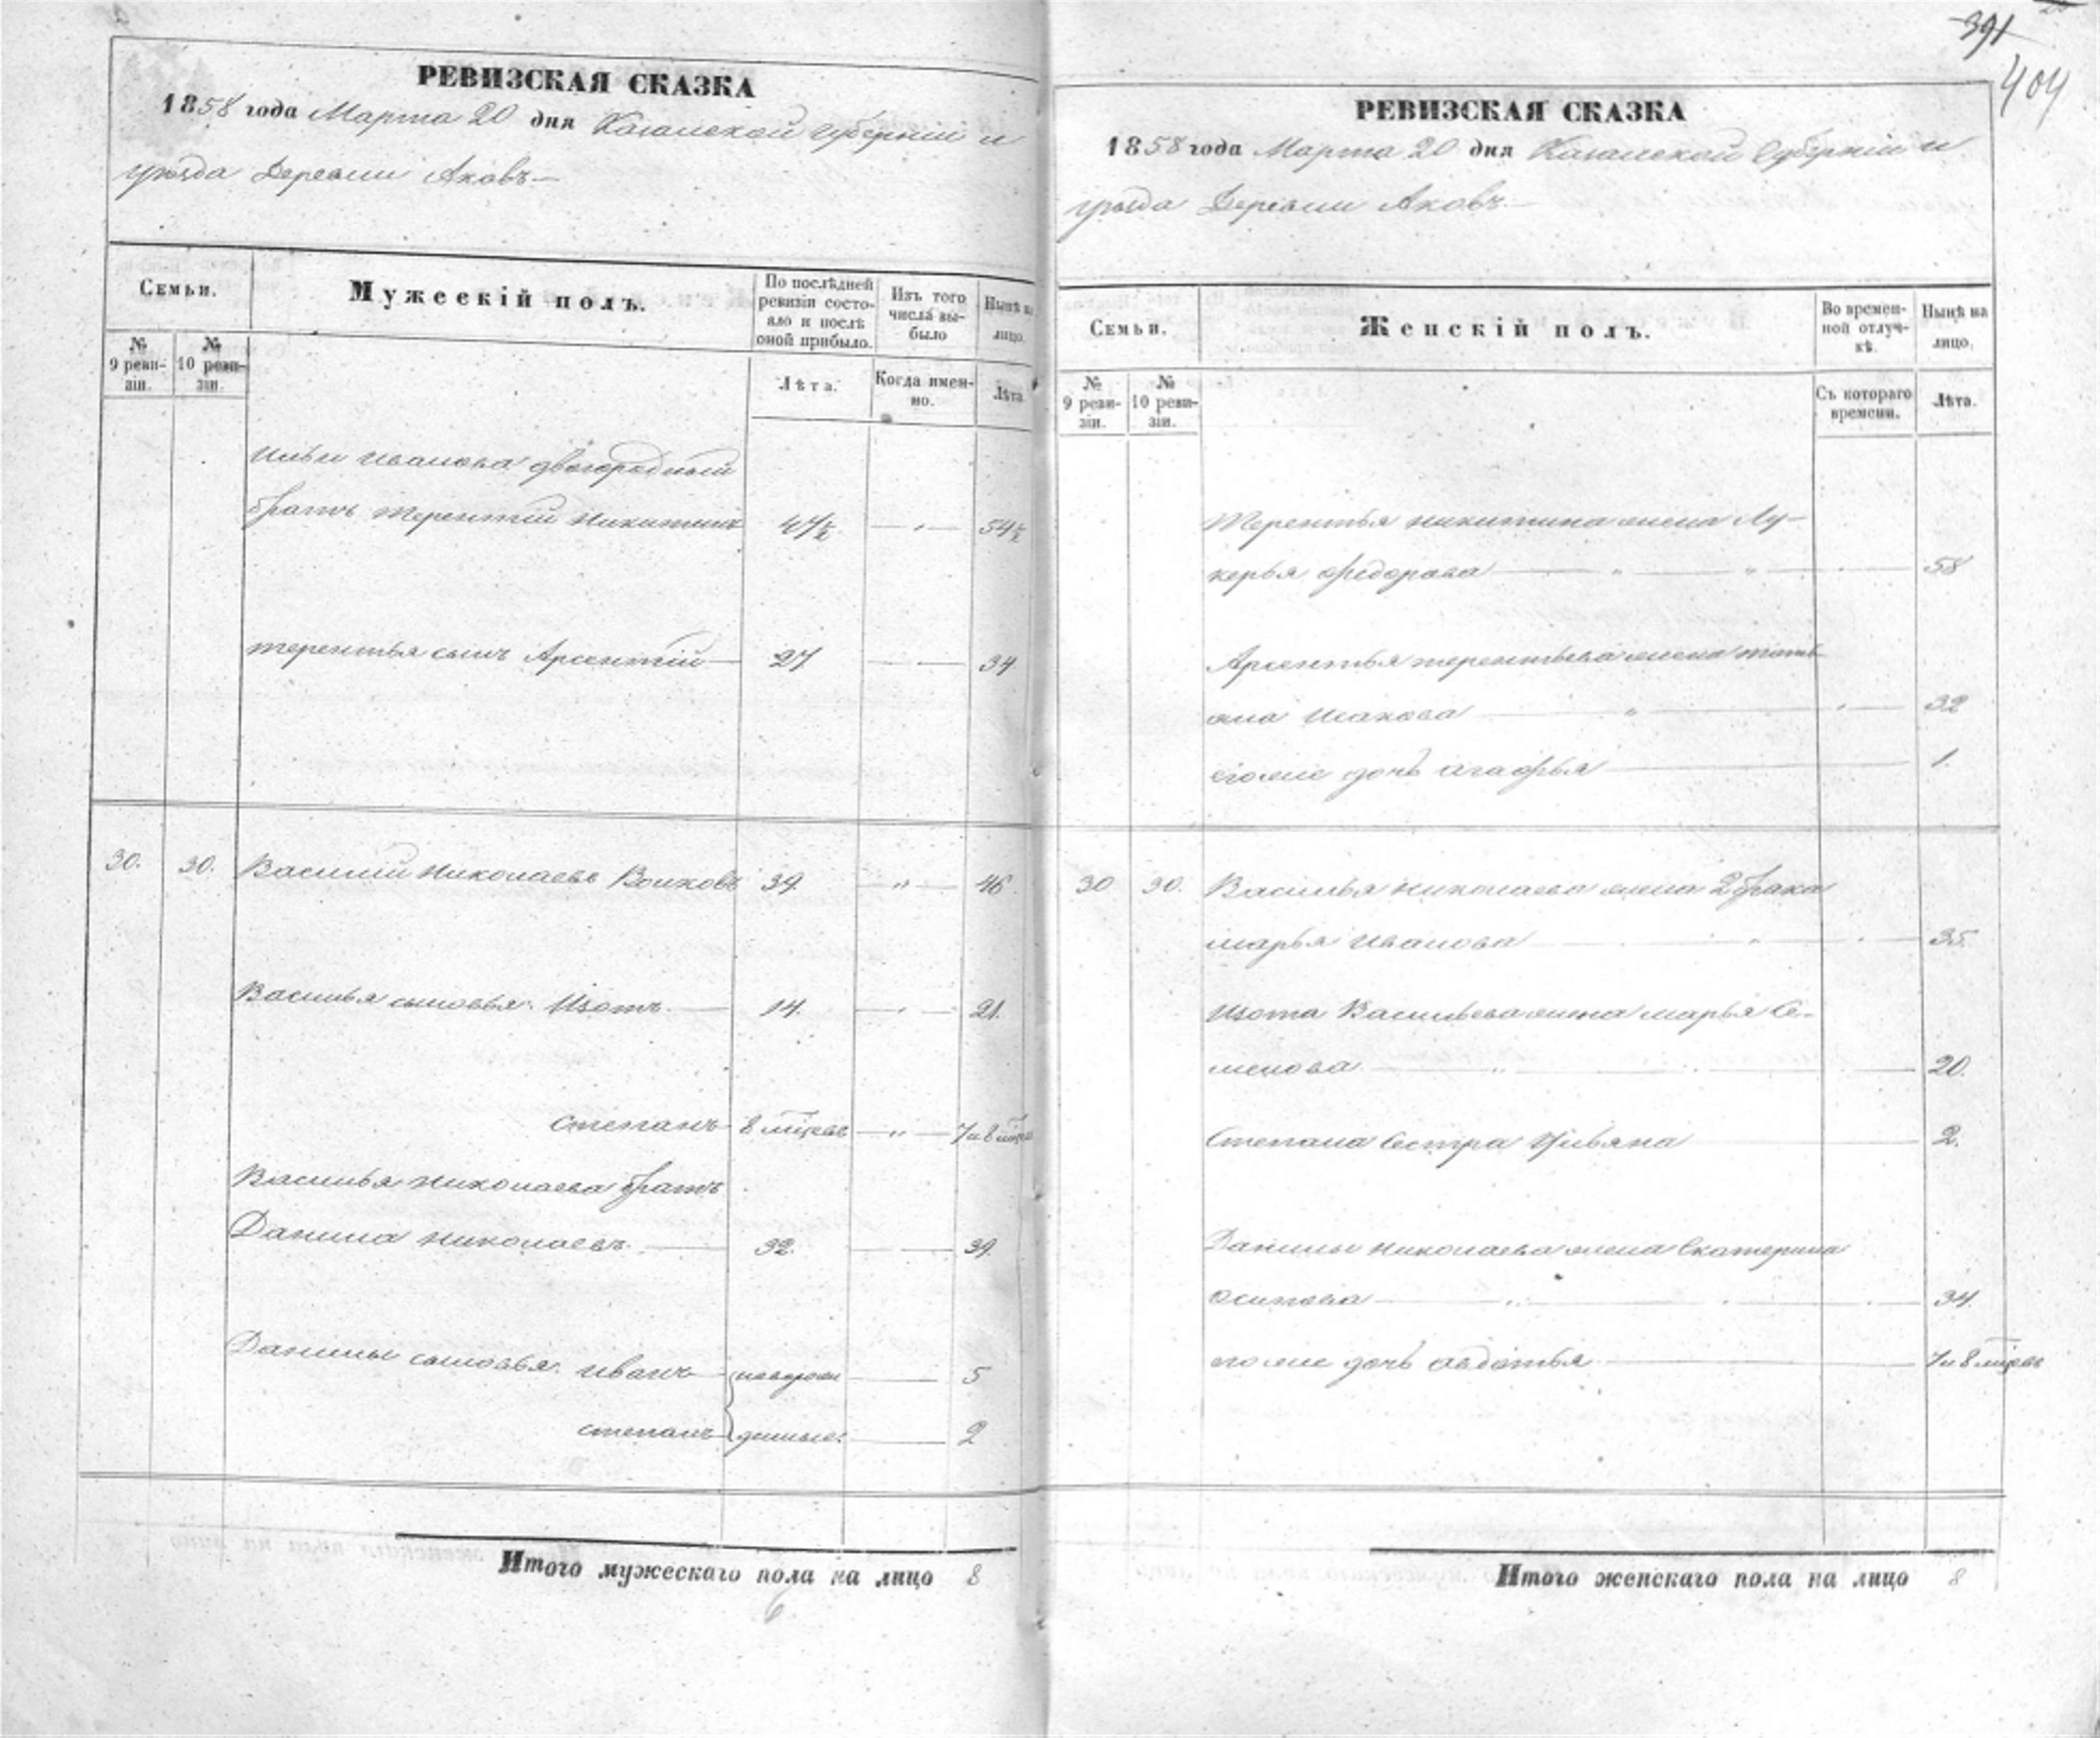 391
404
РЕВИЗСКАЯ СКАЗКА
1858 года Марта 20 дня Казанской губерніи и
уѣзда Деревни Аковъ
Семьи.
Мужескій полъ.
По послѣдней ревизіи состояло и послѣ оной прибыло.
Изъ того числа выбыло
Нынѣ на лицо.
№ 9 ревизіи.
№ 10 ревизіи.
Лѣта.
Когда именно.
Лѣта.
Ильи Иванова двоюродный
братъ Терентій Никитинъ 47½ — " — 54½
Терентья сынъ Арсентій — 27 — — 34
30. 30. Василий Николаевъ Волковъ 39. — " — 46.
Василья сыновья: Изотъ. — 14. — " — 21.
Степанъ 8 мѣсяцъ — " — 7 и 8 мѣсяц
Василья Николаева братъ
Данила Николаевъ. — 32. — — 39.
Данилы сыновья: Иванъ новорож — 5
Степанъ денные: — 2
Итого мужескаго пола на лицо 8
РЕВИЗСКАЯ СКАЗКА
1858 года Марта 20 дня Казанской Губерніи и
уѣзда Деревни Аковъ
Семьи.
Женскій полъ.
Во временной отлучкѣ.
Нынѣ на лицо.
№ 9 ревизіи.
№ 10 ревизіи.
Съ котораго времени.
Лѣта.
Терентья Никитина жена Лу-
керья Федорова — " — " — 58
Арсентья Терентьева жена Тать
яна Исакова — " — 32
его же дочь Агафья — 1.
30 30. Василья Николаева жена 2 брака
Марья Иванова — 35.
Изота Васильева жена Марья Се-
менова — " — 20.
Степана Сестра Ульяна — 2.
Данилы Николаева жена Екатерина
Осипова — " — 34.
его же дочь Авдотья — 7 и 8 мѣсяцъ
Итого женскаго пола на лицо 8